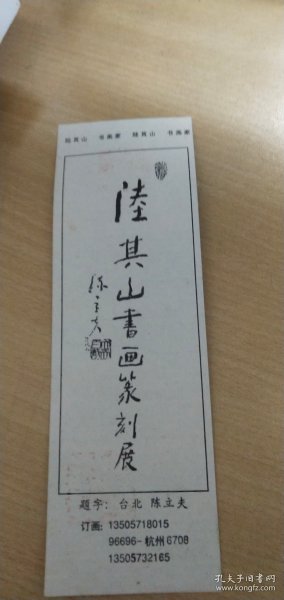 陆其山 书画家 陆其山 书画家
陸其山書画篆刻展
陈立夫
题字：台北 陈立夫
订画：13505718015
96696-杭州6708
13505732165
孔夫子旧书网
www.kongfz.com